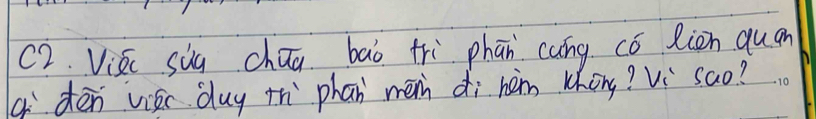 C2. Việc sửa chữa bảo trì phần cứng có liên quan
gì đến việc duy trì phần mềm đi kèm không? Vì sao?